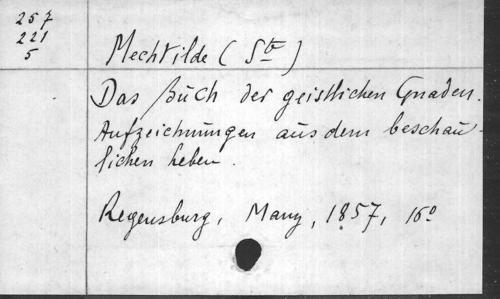 257
221
5
Mechtilde (Ste)
Das Buch der geistlichen Gnaden.
Aufzeichnungen aus dem beschau-
lichen Leben.
Regensburg, Manz, 1857, 16º